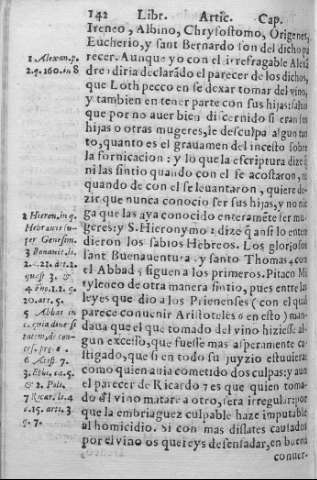 142 Libr. Artic. Cap.
Ireneo, Albino, Chrysostomo, Origenes,
Eucherio, y sant Bernardo son del dicho pa
recer. Aunque yo con el irrefragable Alexã
dre diria declarãdo el parecer de los dichos,
que Loth pecco en se dexar tomar del vino,
y tambien en tener parte con sus hijas: salvo
que por no auer bien discernido si eran sus
hijas o otras mugeres, le desculpa algun tan
to, quanto es el grauamen del incesto sobre
la fornicacion: y lo que la escriptura dize q̃
ni las sintio quando con el se acostaron, ni
quando de con el se leuantaron, quiere de-
zir que nunca conocio ser sus hijas, y no nie
ga que las aya conocido enteramẽte ser mu
geres: y S. Hieronymo 2 dize q̃ ansi lo enten
dieron los sabios Hebreos. Los gloriosos
sant Buenauentura 3 y santo Thomas 4 con
el Abbad 5 siguen a los primeros. Pitaco Mi
tyleneo de otra manera sintio, pues entre la
leyes que dio a los Prienenses (con el qual
parece conuenir Aristoteles 6 en esto) man-
daua que el que tomado del vino hiziesse al
gun excesso, que fuesse mas asperamente ca
stigado, que si en todo su juyzio estuuiera:
como quien auia cometido dos culpas: y aun
el parecer de Ricardo 7 es que quien toma-
do del vino matare a otro, sera irregular: por
que la embriaguez culpable haze imputable
al homicidio. Si con mas dislates causados
por el vino os quereys defenfadar, en buena
conuer-
1 Alexan. p.
2. q. 160. in 8
2 Hieron. in q.
Hebraicis su-
per Genesim.
3 Bonauēt. li.
2. d. 22. art. 2.
quest 3. &
4 tho. 1. 2. q.
20. art. 5.
5 Abbas in
6 Arist. 7.
3. Ethi. ca. 5.
& 2. Poli.
7 Ricar. li. 4
d. 15. arti. 3.
q. 7.